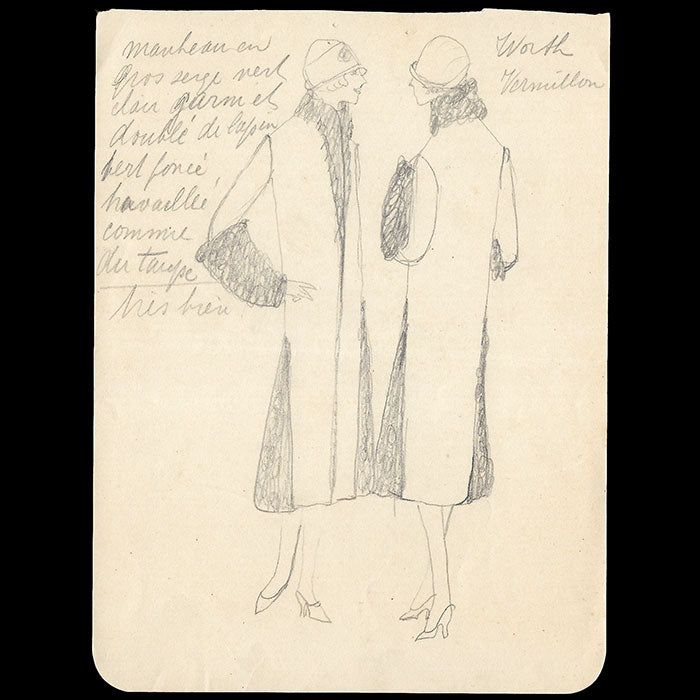 manteau en
gros serge vert
clair garni et
doublé de lapin
vert foncé
travaillé
comme
du taupe
très bien
Worth
Vermillon